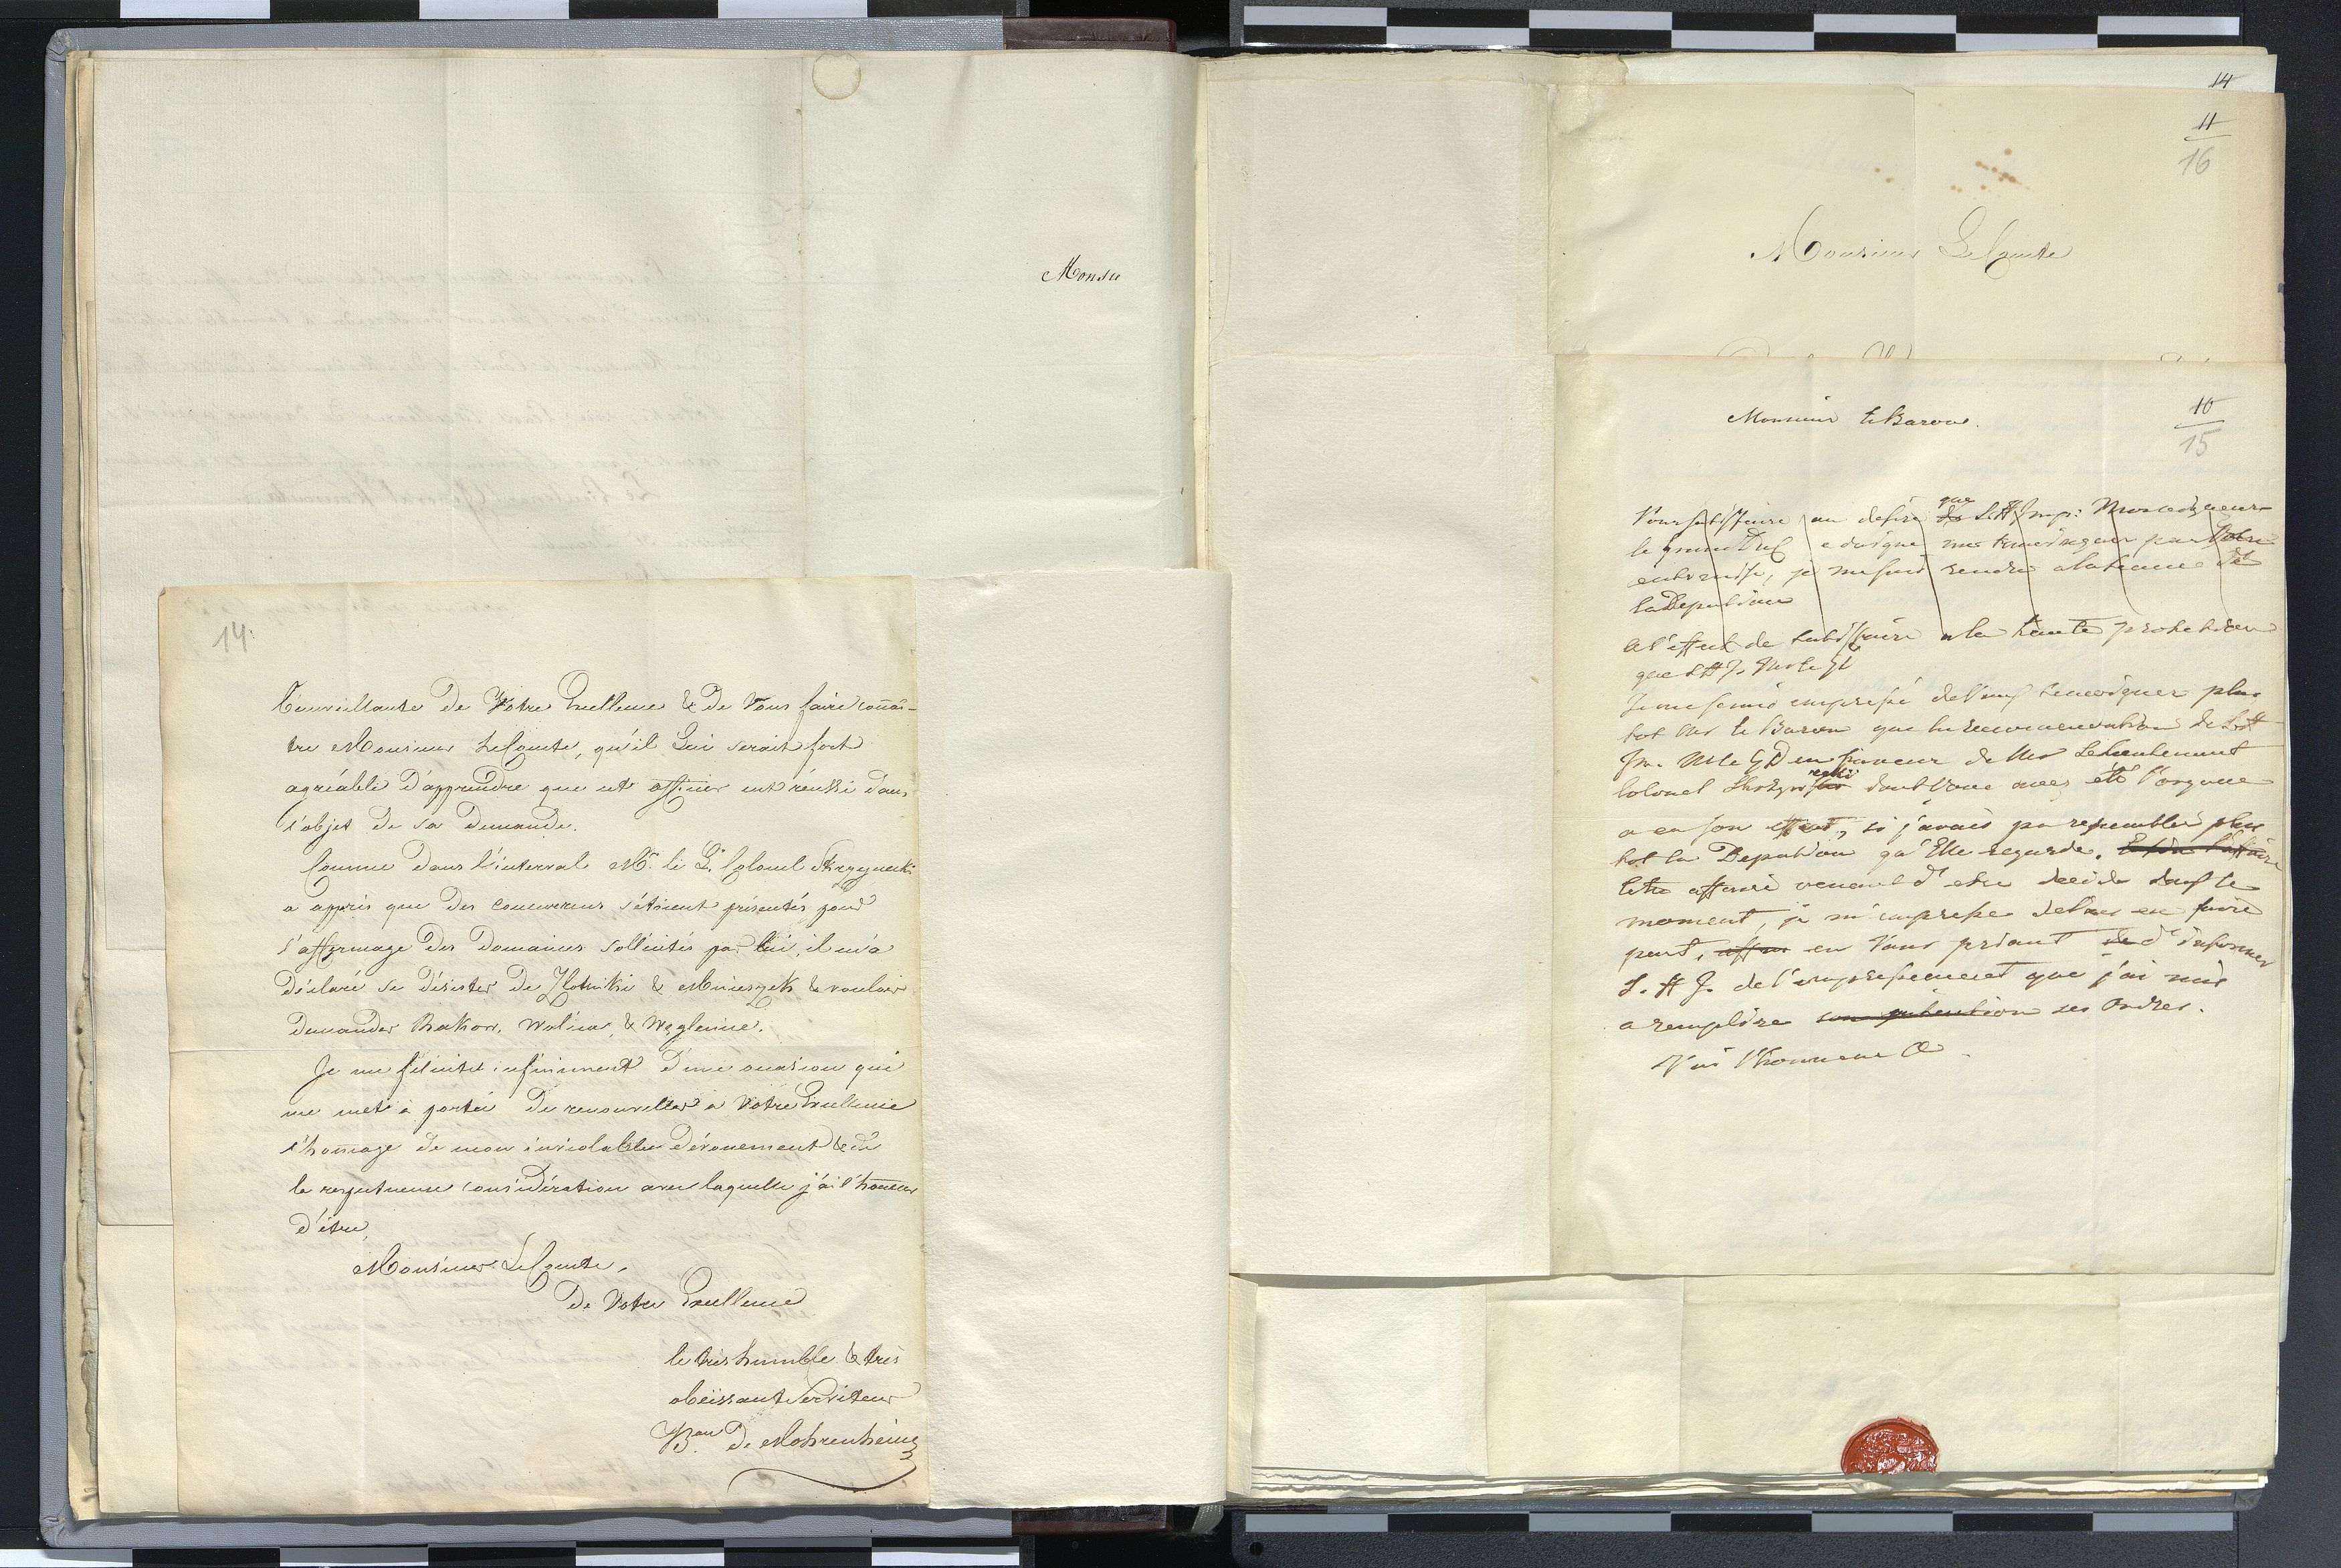 Monsie
14
bienveillante de Votre Excellence & de Vous faire connaî-
tre Monsieur Le Comte, qu'il Lui serait fort
agréable d'apprendre que cet officier eut réussi dans
l'objet de sa demande.
Comme dans l'interval Mr. le Lt. Colonel Skrzynecki
a appris que des concurrens s'étoient présentés pour
l'affermage des Domaines sollicités par lui, il m'a
déclaré se désister de Zlotniki & & vouloir
demander Rakow, Wolica, & Weglenice.
Je me félicite infiniment d'une occasion qui
me met à portée de renouveller à Votre Excellence
l'homage de mon inviolable dévouement & de
la respectueuse considération avec laquelle j'ai l'honneur
d'être,
Monsieur Le Comte,
De Votre Excellence
le très humble & très
obéissant Serviteur
Bon de Mohrenheim
14
11
16
Monsieur Le Comte
10
15
Monsieur le Baron.
que
Pour satisfaire au desire de S.A. Imp: Monseigneur
le grand Duc a daigné me temoigner par Votre
entremise, je me suis rendu a la seance de
la Deputation
A l'effet de satisfaire a la haute protection
que S A I. Msr le
Je me serais empressé de Vous temoigner plus
tot Mr le Baron que la recommendation de S.A
Im. Msr le G D en faveur de Mr Le Lieutenant
Colonel necki dont Vous avez été l'organe
a eu son effect, si j'avais pu rassembler plus
tot la Deputation qu'Elle regarde.
Cette affaire venant d'etre decidé dans le
moment, je m'empresse de Vous en faire
part, en Vous priant de d'informer
S. A I. de l'empressement que j'ai mis
a remplire son intention ses Ordres.
J'ai l'honneur